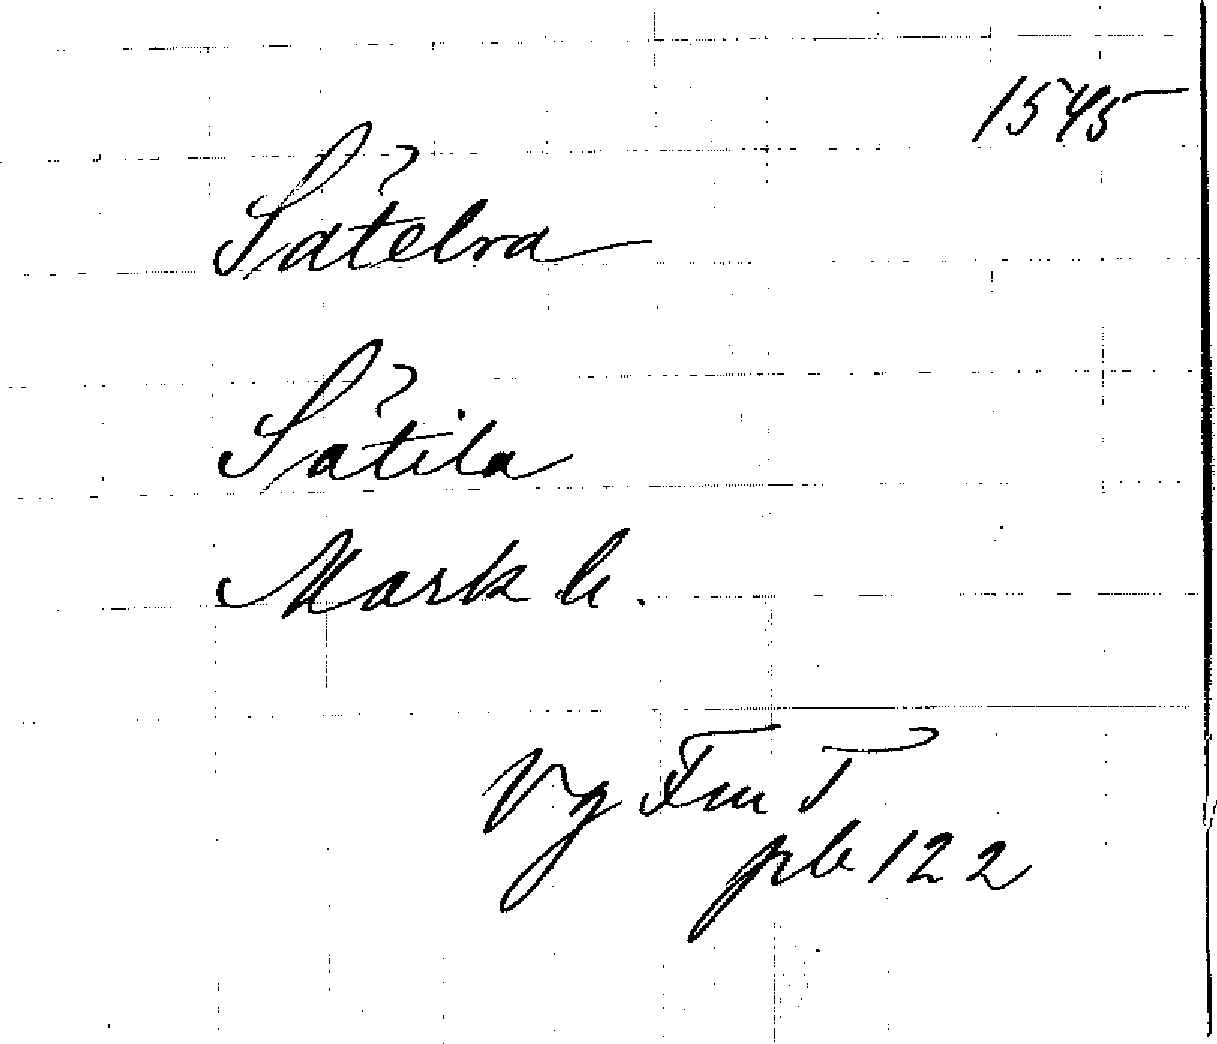 1545
Såtelra
Såtila
Mark h.
Vg Fm T
pb 122